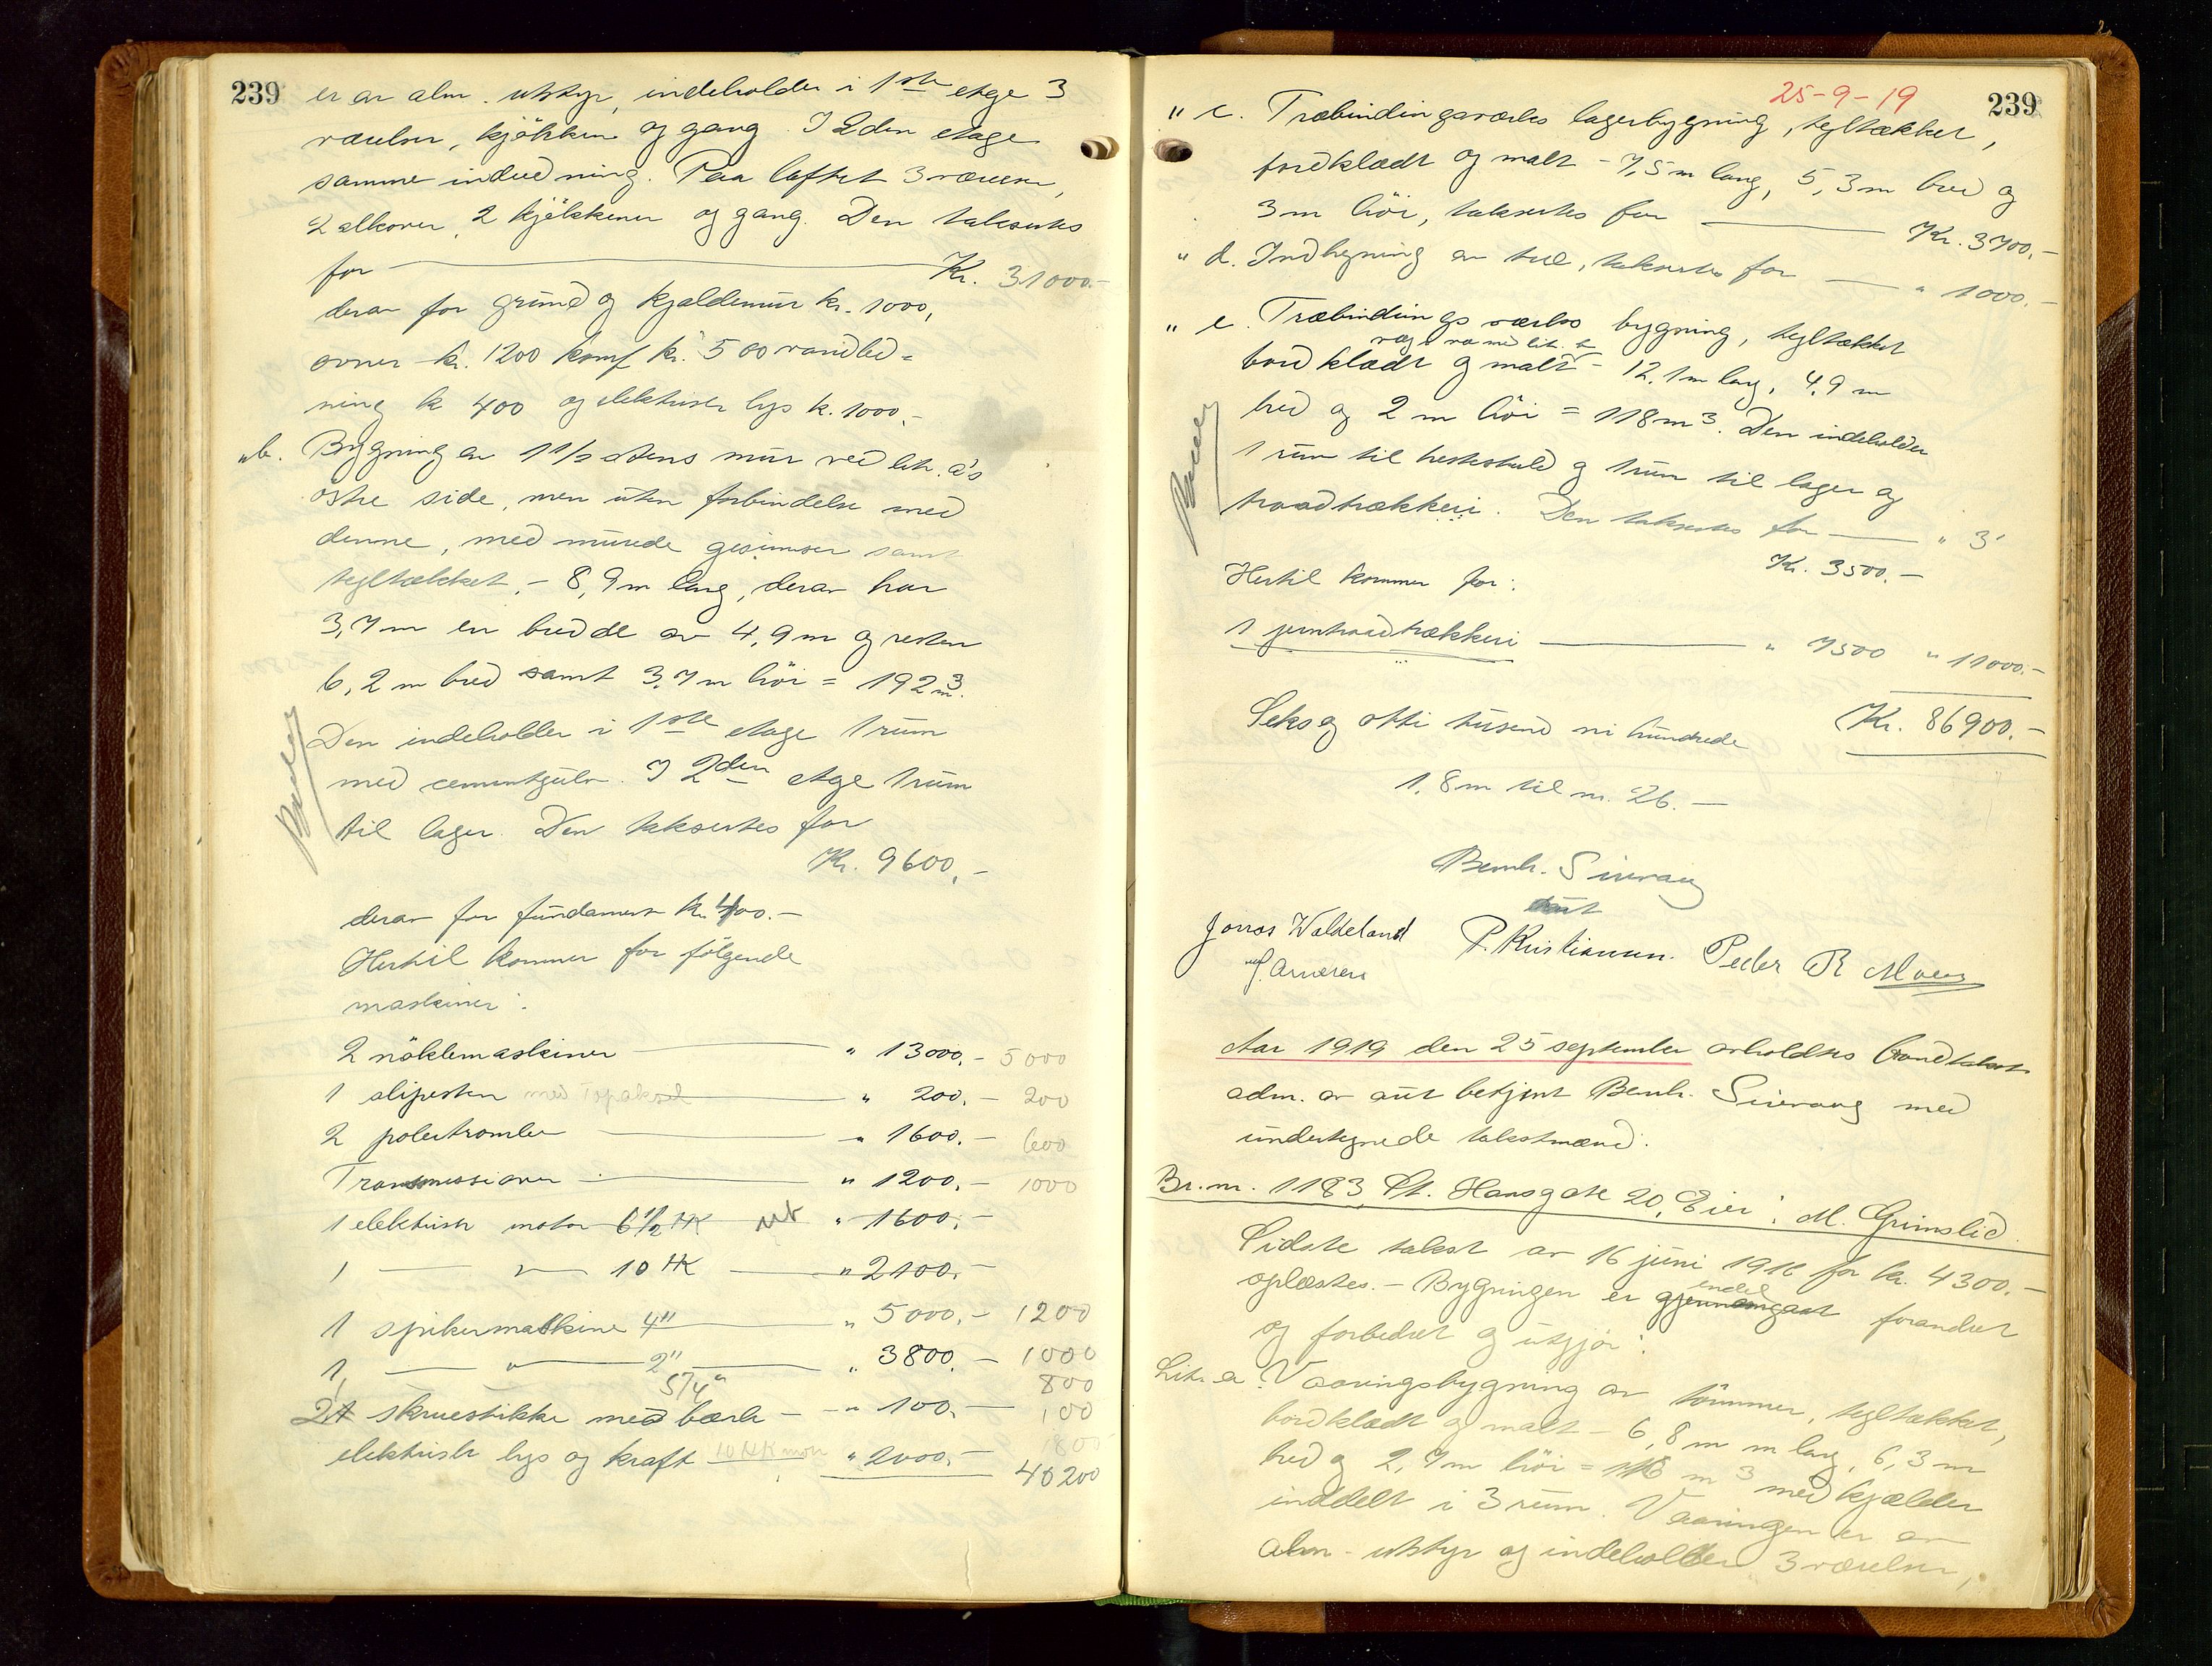 239
er av alm. utstyr, indeholder i 1ste etage 3
værelser, kjøkken og gang. I 2den etage
samme indredning. Paa loftet 3 værelser,
2 alkover, 2 kjøkkener og gang. Den takseres
for Kr. 31000.-
derav for grund og kjeldemur kr. 1000,
ovner kr. 1200 komf kr. 500 vandled-
ning kr 400 og elektrisk lys kr. 1000.-
"b. Bygning av 1 1/2 stens mur ved lit. a's
østre side, men uten forbindelse med
denne, med murede gesimser samt
tegltækket, - 8,9m lang, derav har
3,7m en bredde av 4,9m og resten
6,2m bred samt 3,7m høi = 192m3.
Den indeholder i 1ste etage 1 rum
med cementgulv. I 2den etage 1 rum
til lager. Den takseres for
Kr. 9600.-
derav for fundament kr. 400.-
Hertil kommer for følgende
maskiner:
2 nøklemaskiner " 13000.- 5000
1 slipesten med " 200.- 200
2 polertromler " 1600.- 600
Transmissioner " 1200.- 1000
1 elektrisk motor 6 1/2 HK ut " 1600.-
1 — " — 10 HK " 2100.-
1 spikermaskine 4" " 5000.- 1200
1 — " — 2" " 3800.- 1000
5/4" 800
2 skruestikke med bænk - " 100.- 100
elektrisk lys og kraft 10 HK motor " 2000.- 1800
40200
25-9-19
239
" c. Træbindingsværks lagerbygning, tegltækket,
bordklædt og malt - 7,5m lang, 5,3m bred og
3m høi, takseres for Kr. 3700.-
" d. Indhegning av træ, takseres for " 1000.-
" e. Træbindingsværks bygning, tegltækket
bordklædt og malt - 12,1m lang, 4,9m
bred og 2 m høi = 118m3. Den indeholder
1 rum til hestestald og 1 rum til lager og
traadtrækkeri. Den takseres for " 3
Kr. 3500.-
Hertil kommer for:
1 jerntraadtrækkeri " 7500 " 11000.-
Seks og otti tusend ni hundrede Kr. 86900.-
1,8m til nr. 26.-
Bernh. Sinevaag
aut
Jonas Waldeland P. Kristiansen. Peder R Moen
Aar 1919 den 25 september avholdtes brandtakst
adm. av aut betjent Bernh. Sinevaag med
undertegnede takstmænd.
Br. nr. 1183, St. Hansgate 20, Eier: M. Grimslid.
Sidste takst av 16 juni 1916 for kr. 4300.-
oplæstes. - Bygningen er gjennemgaat endel forandret
og forbedret og utgjør:
Lit. a. Vaaningsbygning av tømmer, tegltækket,
bordklædt og malt - 6,8m m lang, 6,3m
bred og 2,7m høi = 116 m3 med kjælder
inddelt i 3 rum. Vaaningen er av
alm. utstyr og indeholder 3 værelser,